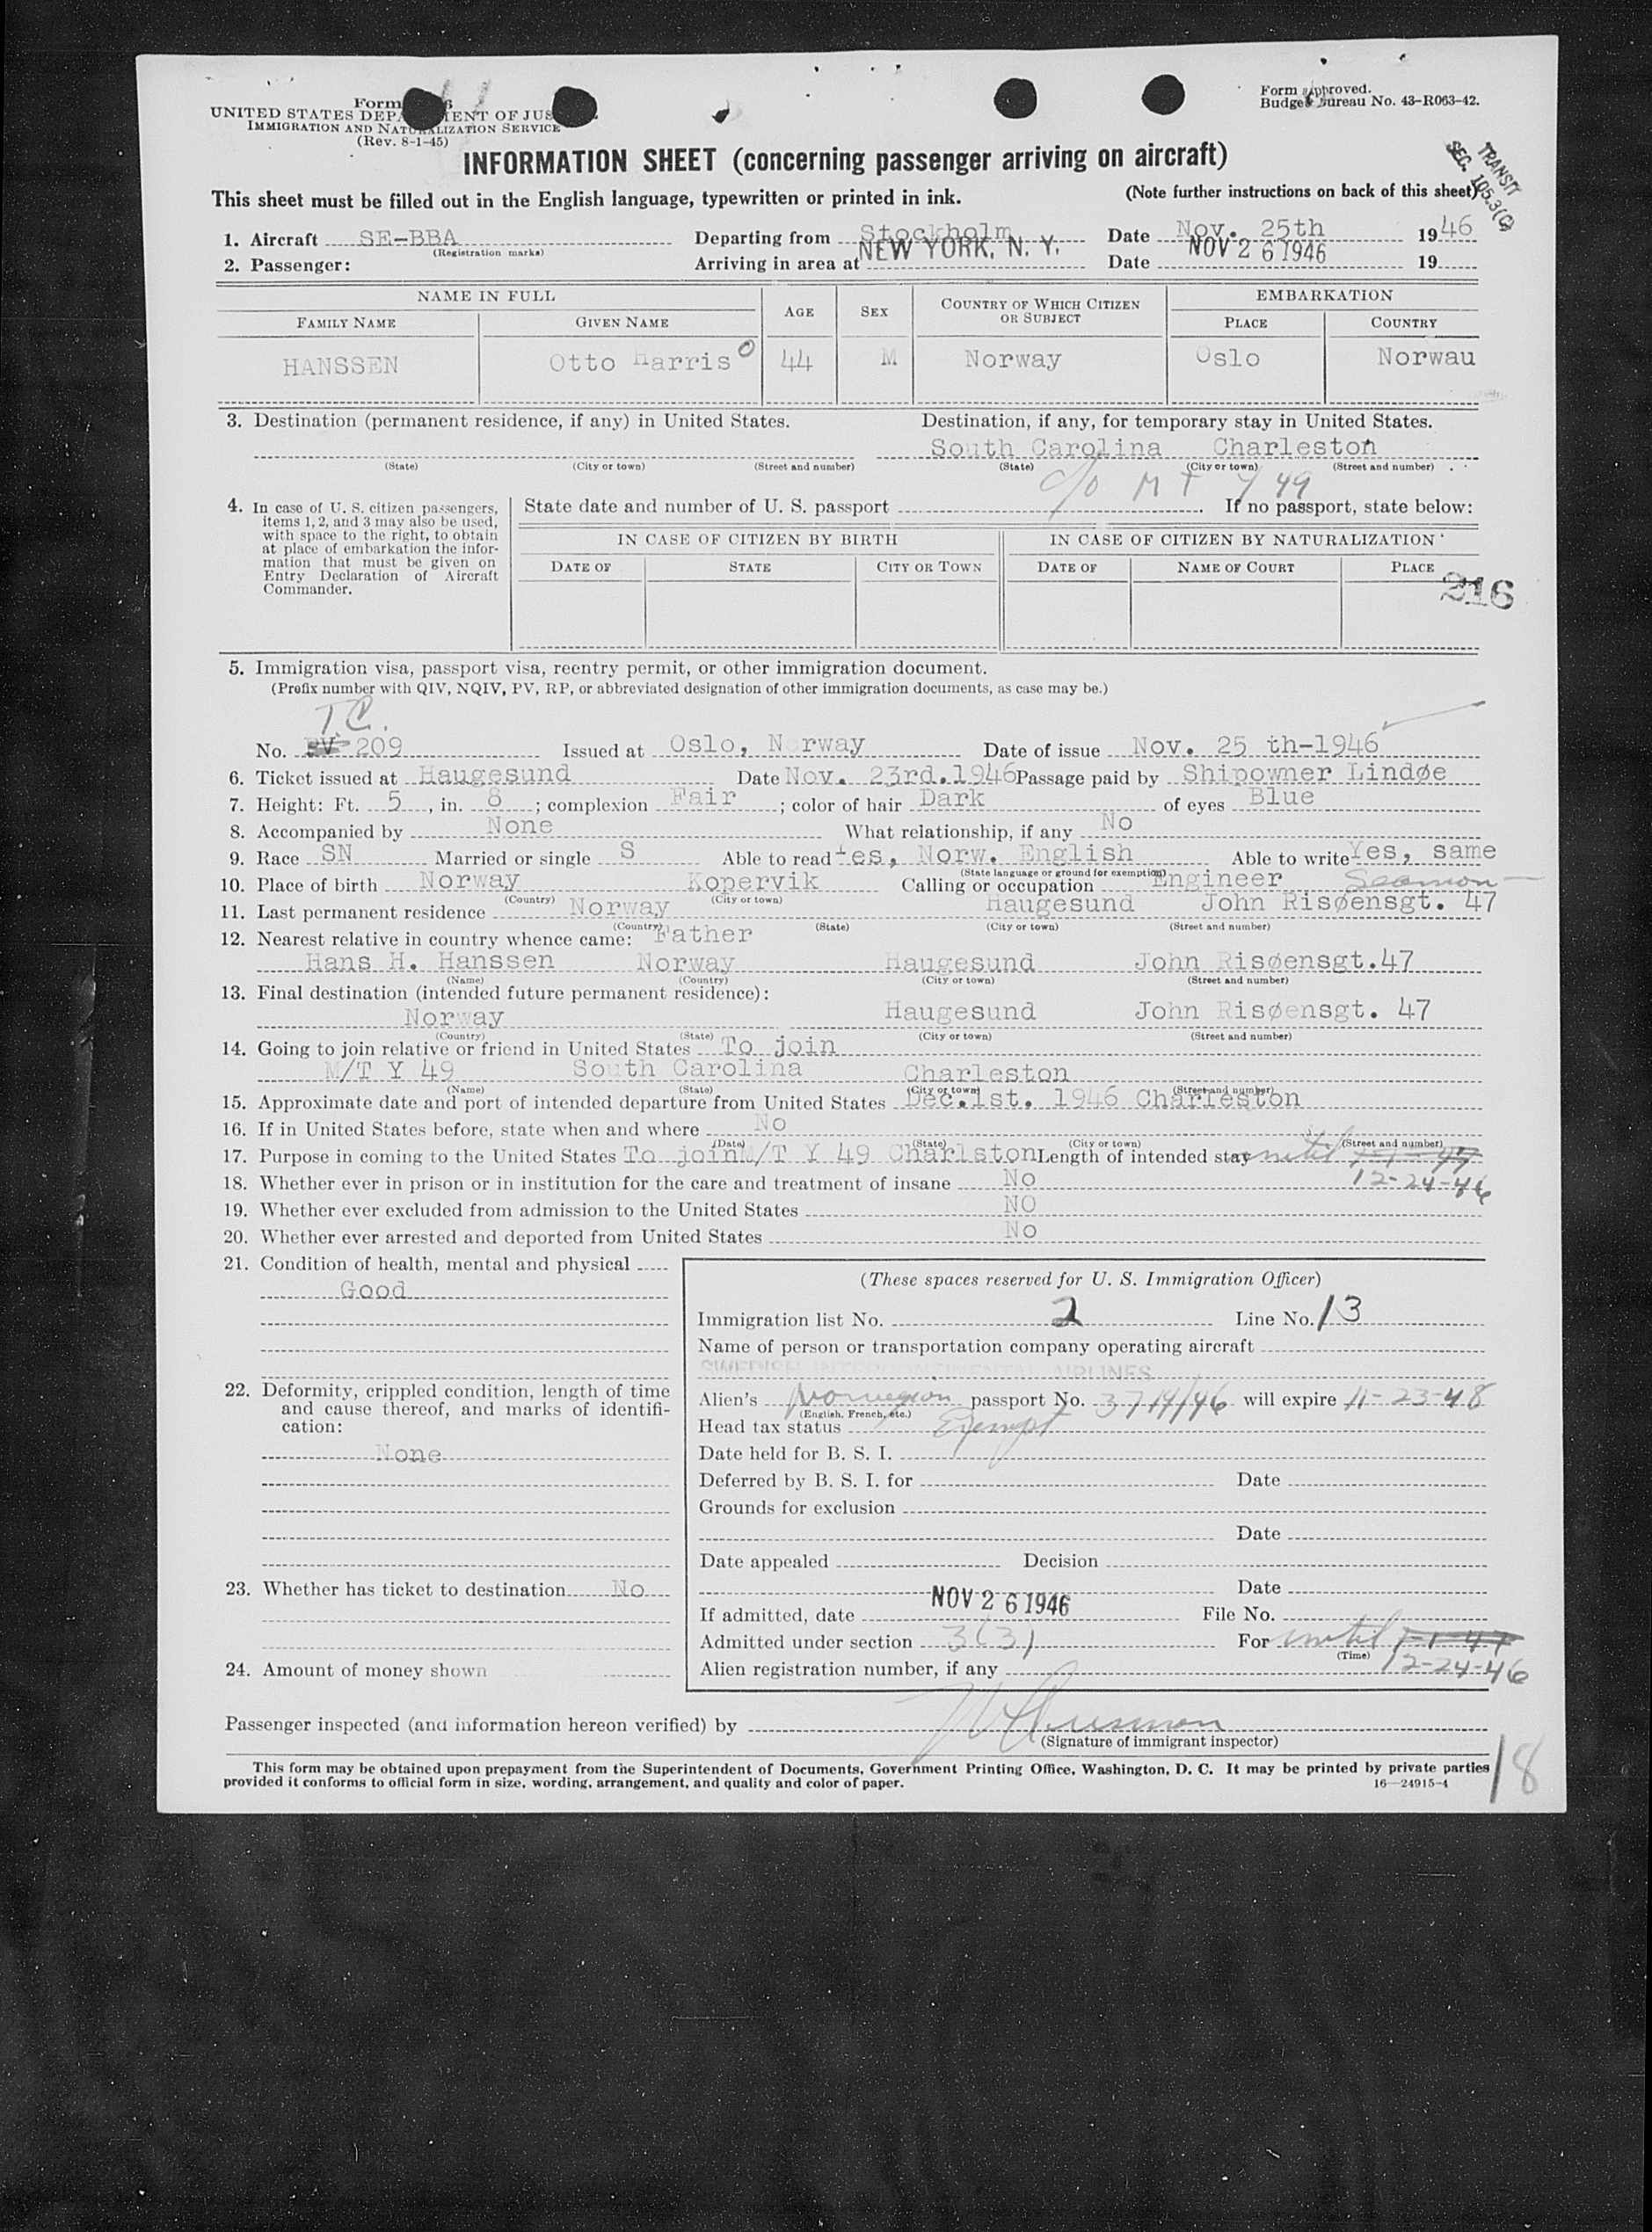 Form
UNITED STATES DEPARTMENT OF JUS
IMMIGRATION AND NATURALIZATION SERVICE
(Rev. 8-1-45)
Form approved.
Budget Bureau No. 43-R063-42.
TRANSIT
SEC. 105.3(C)
INFORMATION SHEET (concerning passenger arriving on aircraft)
This sheet must be filled out in the English language, typewritten or printed in ink. (Note further instructions on back of this sheet)
1. Aircraft SE-BBA Departing from Stockholm Date Nov. 25th 1946
(Registration marks)
2. Passenger: Arriving in area at NEW YORK, N. Y. Date NOV 26 1946 19
NAME IN FULL AGE SEX COUNTRY OF WHICH CITIZEN OR SUBJECT EMBARKATION
FAMILY NAME GIVEN NAME PLACE COUNTRY
HANSSEN Otto Harris O 44 M Norway Oslo Norwau
3. Destination (permanent residence, if any) in United States. Destination, if any, for temporary stay in United States.
South Carolina Charleston
(State) (City or town) (Street and number) (State) (City or town) (Street and number)
c/o M T Y 49
4. In case of U. S. citizen passengers, items 1, 2, and 3 may also be used, with space to the right, to obtain at place of embarkation the information that must be given on Entry Declaration of Aircraft Commander.
State date and number of U. S. passport If no passport, state below:
IN CASE OF CITIZEN BY BIRTH IN CASE OF CITIZEN BY NATURALIZATION
DATE OF STATE CITY OR TOWN DATE OF NAME OF COURT PLACE
216
5. Immigration visa, passport visa, reentry permit, or other immigration document.
(Prefix number with QIV, NQIV, PV, RP, or abbreviated designation of other immigration documents, as case may be.)
T.C.
No. PV- 209 Issued at Oslo, N rway Date of issue Nov. 25 th-1946
6. Ticket issued at Haugesund Date Nov. 23rd.1946 Passage paid by Shipowner Lindøe
7. Height: Ft. 5, in. 8; complexion Fair; color of hair Dark of eyes Blue
8. Accompanied by None What relationship, if any No
9. Race SN Married or single S Able to read Yes, Norw. English Able to write Yes, same
(State language or ground for exemption)
10. Place of birth Norway Kopervik Calling or occupation Engineer Seaman
(Country) (City or town)
11. Last permanent residence Norway Haugesund John Risøensgt. 47
(Country) (State) (City or town) (Street and number)
12. Nearest relative in country whence came: Father
Hans H. Hanssen Norway Haugesund John Risøensgt.47
(Name) (Country) (City or town) (Street and number)
13. Final destination (intended future permanent residence):
Norway Haugesund John Risøensgt. 47
(Country) (State) (City or town) (Street and number)
14. Going to join relative or friend in United States To join
M/T Y 49 South Carolina Charleston
(Name) (State) (City or town) (Street and number)
15. Approximate date and port of intended departure from United States Dec.1st. 1946 Charleston
16. If in United States before, state when and where No
(Date) (State) (City or town) (Street and number)
17. Purpose in coming to the United States To join M/T Y 49 Charlston Length of intended stay until 1-1-47
12-24-46
18. Whether ever in prison or in institution for the care and treatment of insane No
19. Whether ever excluded from admission to the United States NO
20. Whether ever arrested and deported from United States No
21. Condition of health, mental and physical
Good
22. Deformity, crippled condition, length of time and cause thereof, and marks of identification:
None
23. Whether has ticket to destination No
24. Amount of money shown
(These spaces reserved for U. S. Immigration Officer)
Immigration list No. 2 Line No. 13
Name of person or transportation company operating aircraft
SWEDISH INTERCONTINENTAL AIRLINES
Alien's Norwegian passport No. 3714/46 will expire 11-23-48
(English, French, etc.)
Head tax status Exempt
Date held for B. S. I.
Deferred by B. S. I. for Date
Grounds for exclusion
Date
Date appealed Decision
Date
If admitted, date NOV 26 1946 File No.
Admitted under section 3(3) For until 1-1-47
(Time)
12-24-46
Alien registration number, if any
Passenger inspected (and information hereon verified) by
(Signature of immigrant inspector)
This form may be obtained upon prepayment from the Superintendent of Documents, Government Printing Office, Washington, D. C. It may be printed by private parties
provided it conforms to official form in size, wording, arrangement, and quality and color of paper. 16—24915-4
18